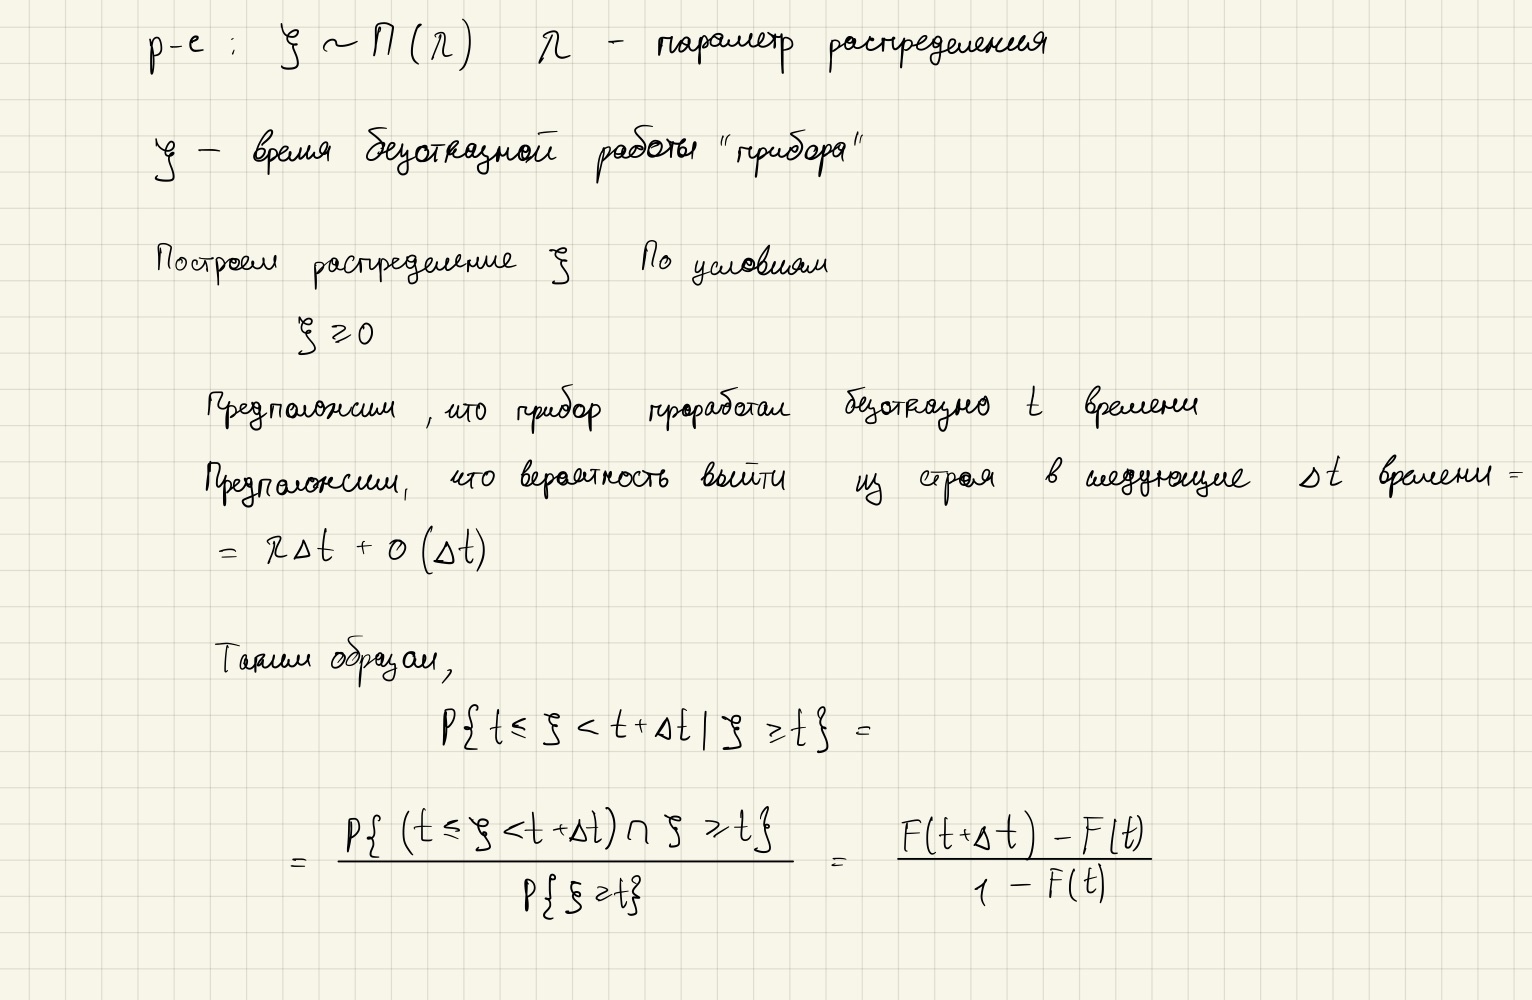 р-е : ξ ~ П(λ) λ - параметр распределения
ξ - время безотказной работы "прибора"
Построем распределение ξ По условиям
ξ ≥ 0
Предположим, что прибор проработал безотказно t времени
Предположим, что вероятность выйти из строя в следующие Δt времени =
= λΔt + o(Δt)
Таким образом,
P{t ≤ ξ < t+Δt | ξ ≥ t} =
= P{(t ≤ ξ < t+Δt) ∩ ξ ≥ t} / P{ξ ≥ t} = F(t+Δt) - F(t) / 1 - F(t)